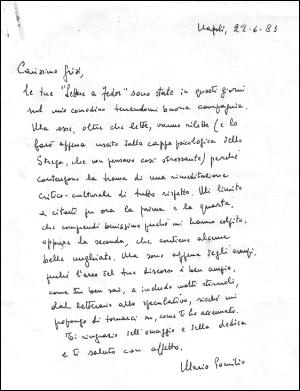 Napoli, 22-6-83
Carissimo Grisi,
le tue "Lettere a Fedor" sono state in questi giorni
sul mio comodino tenendomi buona compagnia.
Ma esse, oltre che lette, vanno rilette (e lo
farò appena uscito dalla cappa psicologica dello
Strega, che non pensavo così stressante) perché
contengono la trama di una rimeditazione
critico-culturale di tutto rispetto. Mi limito
a citarti per ora la prima e la quarta,
che compendi benissimo perché mi hanno colpito,
oppure la seconda, che contiene alcune
belle unghiate. Ma sono appena degli esempi,
perché l'arco del tuo discorso è ben ampio,
come tu ben sai, e include molti stimoli,
dal letterario allo speculativo, sicché mi
propongo di tornarci su, come t'ho accennato.
Ti ringrazio dell'omaggio e della dedica
e ti saluto con affetto.
Mario Pomilio